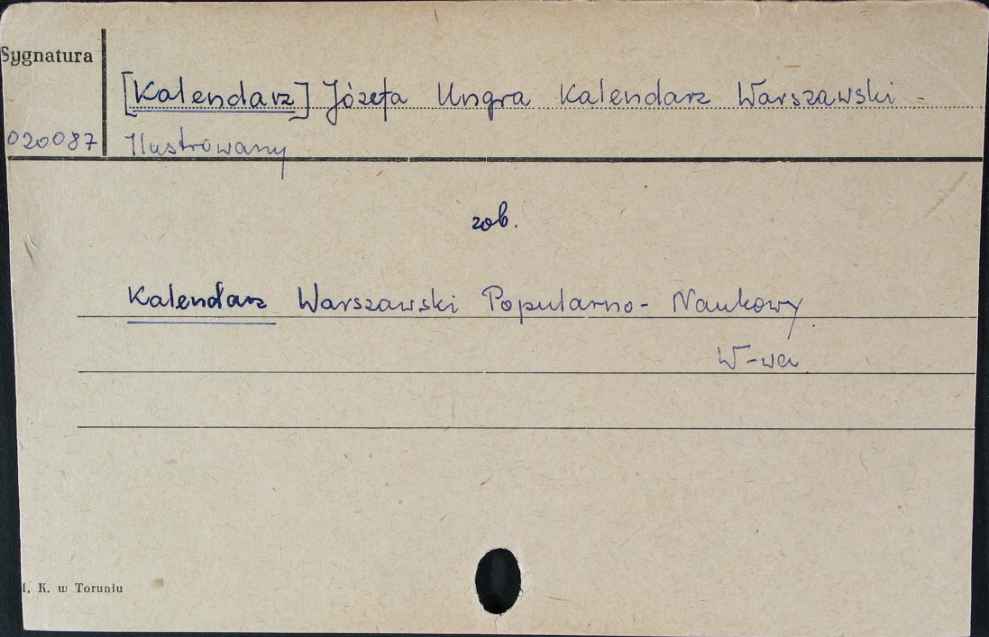 Sygnatura
[Kalendarz] Józefa Ungra Kalendarz Warszawski -
020087 Ilustrowany
zob.
Kalendarz Warszawski Popularno- Naukowy.
W-wa
K. w Toruniu